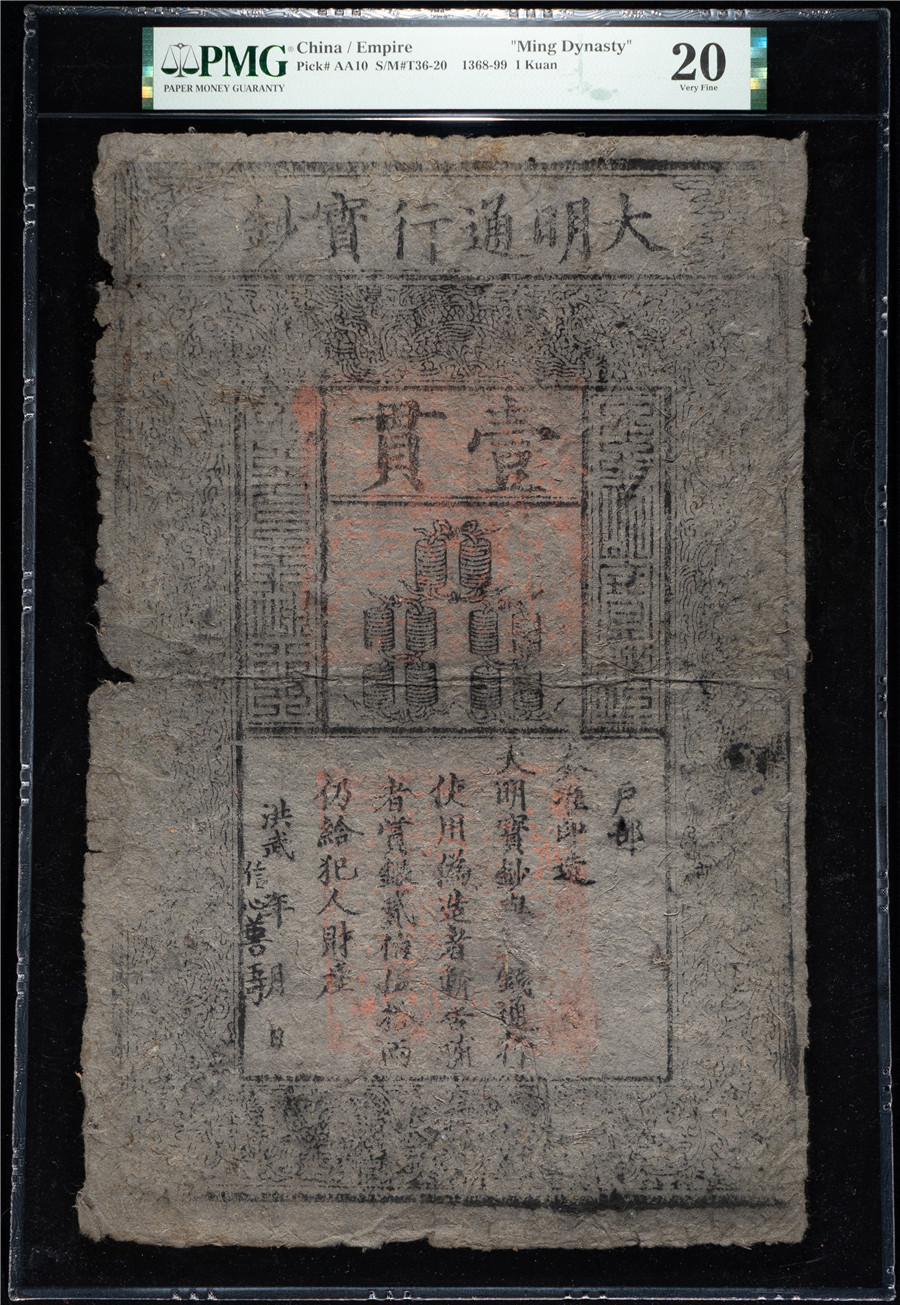 PMG
PAPER MONEY GUARANTY
China / Empire "Ming Dynasty"
Pick# AA10 S/M#T36-20 1368-99 1 Kuan
20
Very Fine
大明通行寶鈔
壹貫
戶部
奏准印造
大明寶鈔與 錢通行
使用偽造者斬告捕
者賞銀貳佰伍拾兩
仍給犯人財產
洪武 年 月 日
信心善